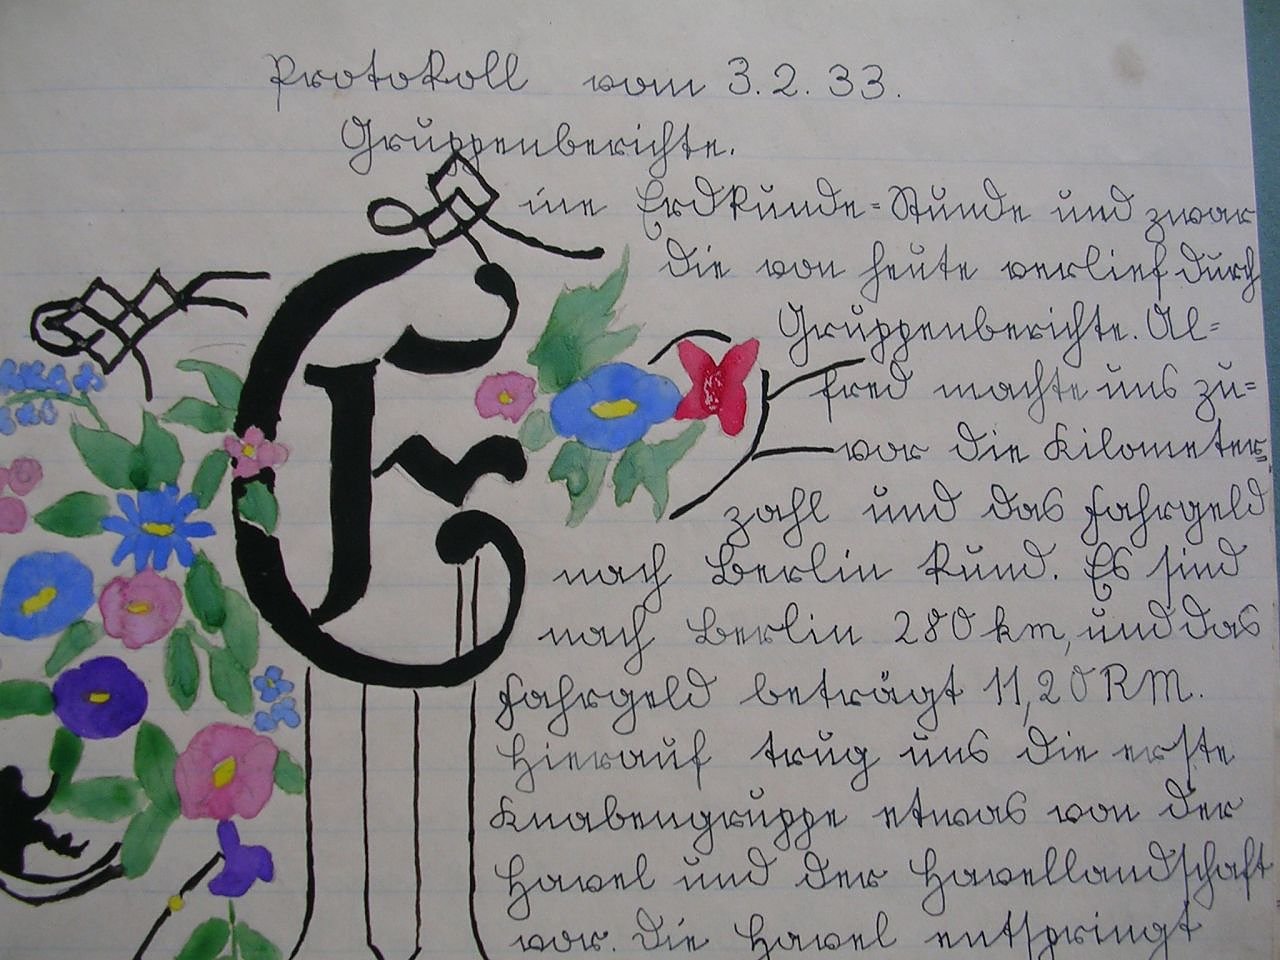 Protokoll vom 3.2.33.
Gruppenberichte.
Eine Erdkunde=Stunde und zwar
die von heute verlief durch
Gruppenberichte. Al=
fred machte uns zu=
vor die Kilometer=
zahl und das Fahrgeld
nach Berlin kund. Es sind
nach Berlin 280 km, und das
Fahrgeld beträgt 11,20 RM.
Hierauf trug uns die erste
Knabengruppe etwas von der
Havel und der Havellandschaft
vor. Die Havel entspringt